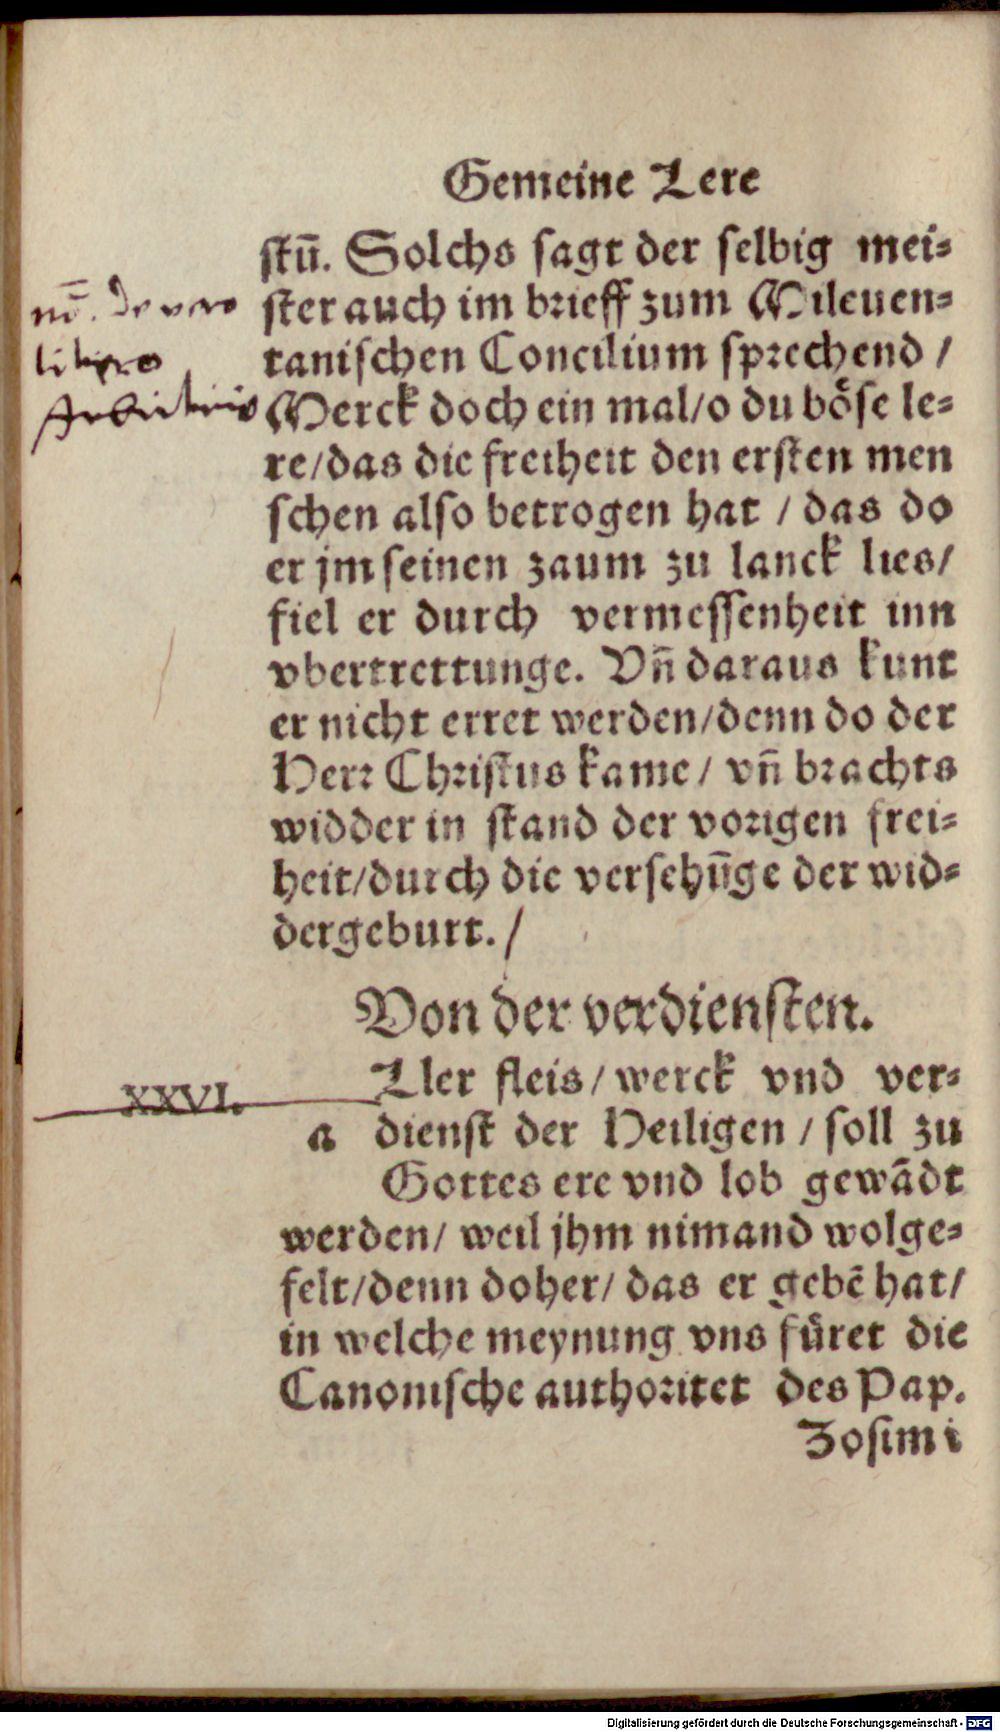 Gemeine Lere
stū. Solchs sagt der selbig mei⸗
ster auch im brieff zum Mileuen⸗
tanischen Concilium sprechend /
Merck doch ein mal/o du böse le⸗
re/das die freiheit den ersten men
schen also betrogen hat / das do
er jm seinen zaum zu lanck lies/
fiel er durch vermessenheit inn
vbertrettunge. Vñ daraus kunt
er nicht erret werden/denn do der
Herr Christus kame/ vñ brachts
widder in stand der vorigen frei⸗
heit/durch die versehūge der wid⸗
dergeburt./
nō. de vero
libero
Arbitrio
Von der verdiensten.
XXVI.
Ller fleis/werck vnd ver⸗
a dienst der Heiligen / soll zu
Gottes ere vnd lob gewādt
werden/ weil jhm nimand wolge⸗
felt/denn doher/ das er gebē hat/
in welche meynung vns füret die
Canonische authoritet des Pap.
Zosimi
Digitalisierung gefördert durch die Deutsche Forschungsgemeinschaft - DFG